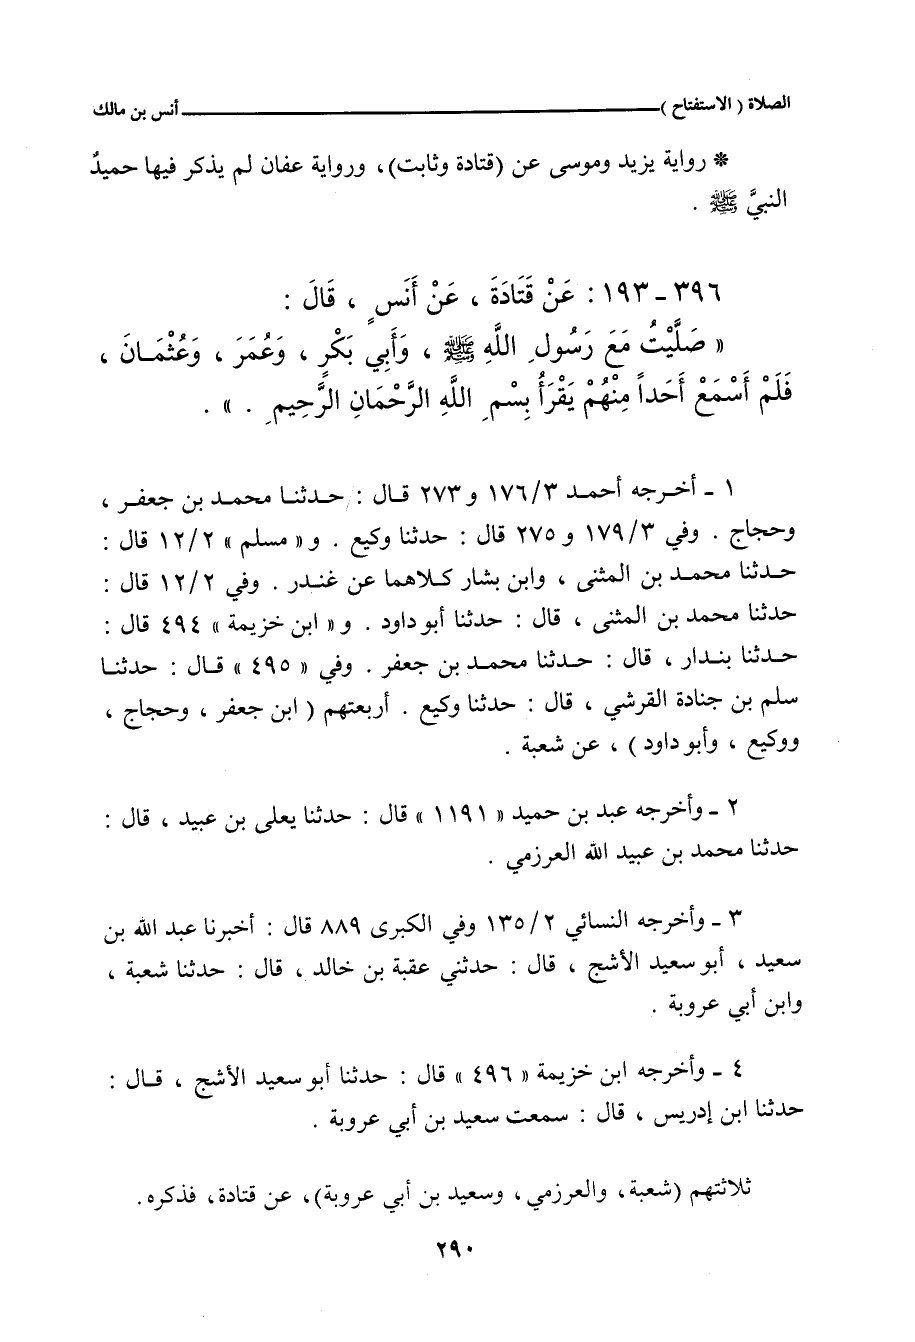 الصلاة ( الاستفتاح ) ــــــــــــــــــــ أنس بن مالك
* رواية يزيد وموسى عن (قتادة وثابت)، ورواية عفان لم يذكر فيها حميدٌ
النبيَّ ﷺ .
٣٩٦ ـ ١٩٣ : عَنْ قَتَادَةَ ، عَنْ أَنَسٍ ، قَالَ :
« صَلَّيْتُ مَعَ رَسُولِ اللَّهِ ﷺ ، وَأَبِي بَكْرٍ ، وَعُمَرَ ، وَعُثْمَـانَ ،
فَلَمْ أَسْمَعْ أَحَداً مِنْهُمْ يَقْرَأُ بِسْمِ اللَّهِ الرَّحْمَانِ الرَّحِيمِ . » .
١ ـ أخـرجه أحمـد ١٧٦/٣ و ٢٧٣ قـال : حـدثنـا محمـد بن جعفـر ،
وحجاج . وفي ١٧٩/٣ و ٢٧٥ قال : حدثنا وكيع . و« مسلم » ١٢/٢ قال :
حـدثنا محمـد بن المثنى ، وابن بشار كـلاهما عن غنـدر . وفي ١٢/٢ قال :
حدثنا محمد بن المثنى ، قال : حدثنا أبو داود . و« ابن خزيمة » ٤٩٤ قال :
حـدثنا بنـدار ، قال : حـدثنا محمـد بن جعفر . وفي « ٤٩٥ » قـال : حدثنـا
سلم بن جنادة القرشي ، قال : حدثنا وكيع . أربعتهم ( ابن جعفر ، وحجاج ،
ووكيع ، وأبو داود ) ، عن شعبة .
٢ ـ وأخرجه عبد بن حميد « ١١٩١ » قال : حدثنا يعلى بن عبيد ، قال :
حدثنا محمد بن عبيد الله العرزمي .
٣ ـ وأخرجه النسائي ١٣٥/٢ وفي الكبرى ٨٨٩ قال : أخبرنا عبد الله بن
سعيد ، أبو سعيد الأشج ، قال : حدثني عقبة بن خالد ، قال : حدثنا شعبة ،
وابن أبي عروبة .
٤ ـ وأخرجه ابن خزيمة « ٤٩٦ » قال : حدثنا أبو سعيد الأشج ، قـال :
حدثنا ابن إدريس ، قال : سمعت سعيد بن أبي عروبة .
ثلاثتهم (شعبة، والعرزمي ، وسعيد بن أبي عروبة)، عن قتادة، فذكره.
٢٩٠